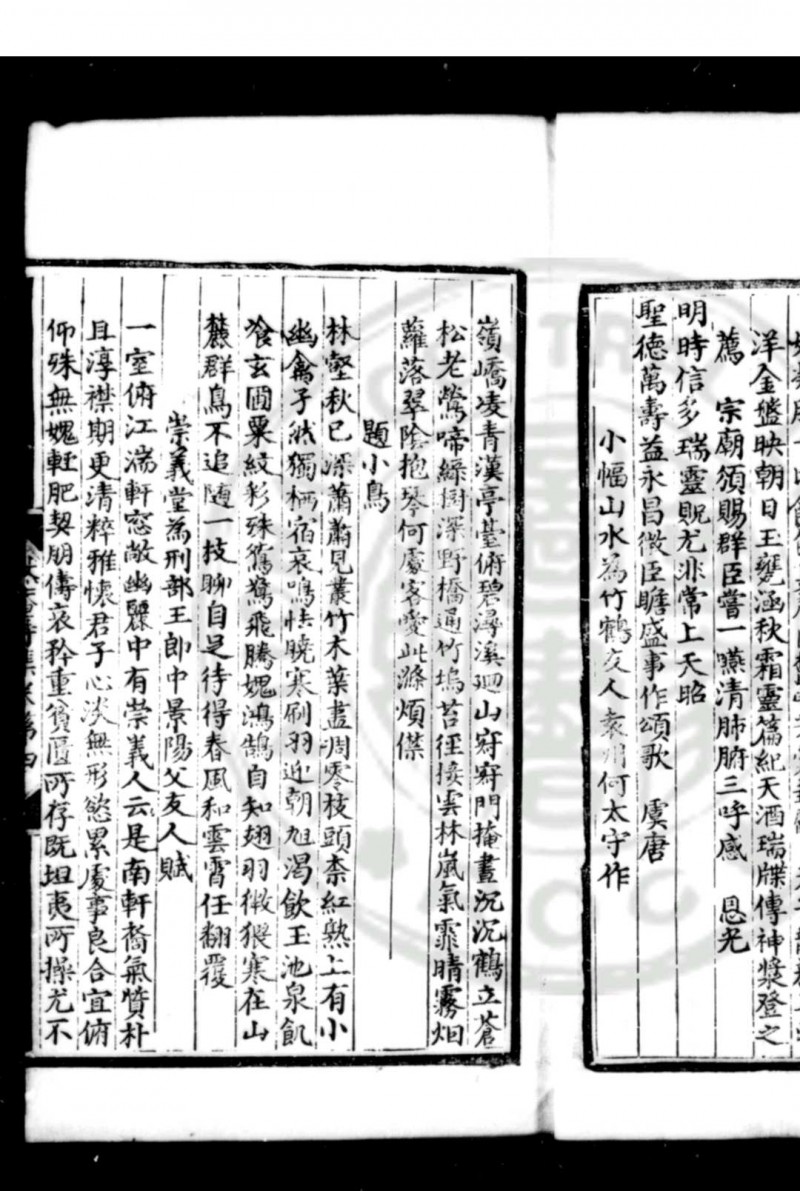 洋金盤映朝日玉甕涵秋霜靈篇紀天酒瑞牒傳神漿登之
薦　宗廟須賜群臣嘗一嚥清肺腑三呼感　恩光
明時信多瑞靈貺尤非常上天昭
聖德萬壽益永昌微臣瞻盛事作頌歌　虞唐
小幅山水為竹鶴友人袁州何太守作
嶺嶠凌青漢亭臺俯碧潯溪迴山窈窈門掩晝沉沉鶴立蒼
松老鶯啼綠樹深野橋通竹塢苔徑接雲林嵐氣霏晴霧烟
蘿落翠陰抱琴何處客愛此滌煩襟
題小鳥
林壑秋已深蕭蕭見叢竹木葉盡凋零枝頭柰紅熟上有小
幽禽孑然獨栖宿哀鳴怯曉寒刷羽迎朝旭渴飲玉池泉飢
飡玄圃粟紋彩殊鴛鴦飛騰媿鴻鵠自知翅羽微猥寒在山
麓群鳥不追随一技聊自足待得春風和雲霄任翻覆
崇義堂為刑部王郎中景陽父友人賦
一室俯江湍軒窓敞幽麗中有崇義人云是南軒裔氣贊朴
且淳襟期更清粹雅懷君子心淡無形慾累處事良合宜俯
仰殊無媿輕肥契朋儔哀矜重貧匱所存既坦夷所操尤不